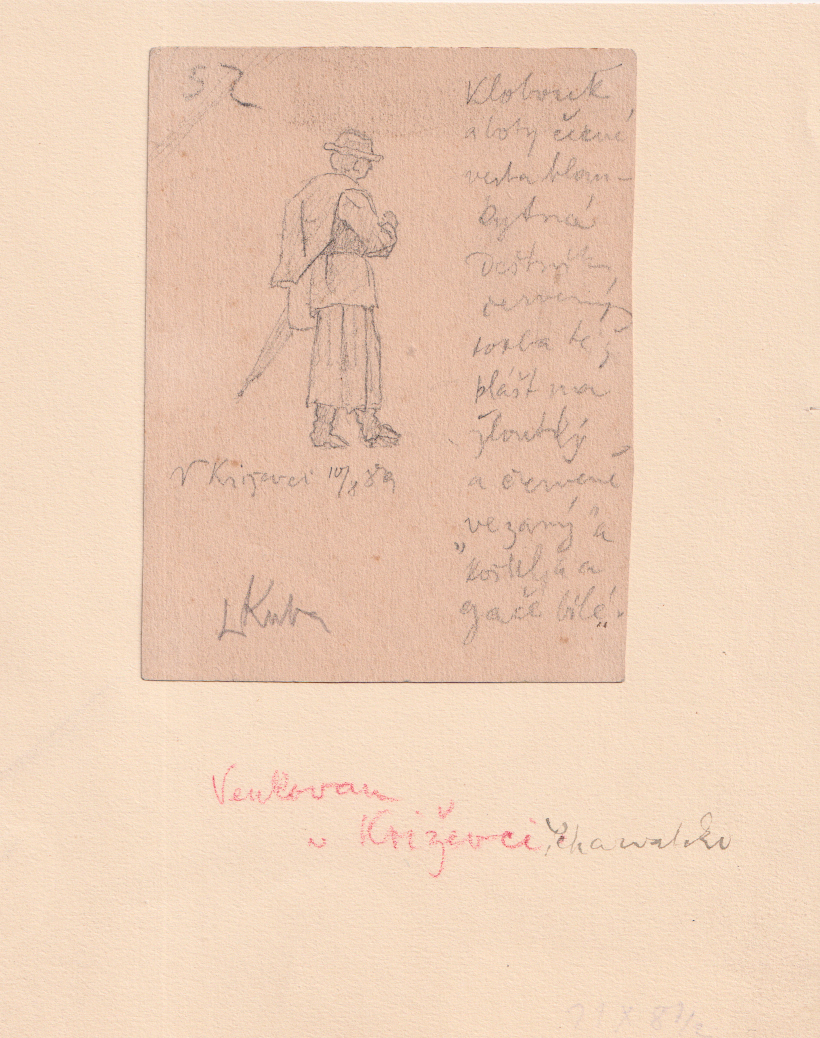 52
Klobouk
a boty černé
vesta blan-
kytná
Deštník
červený
torba též
plášť na
žloutky
a červeně
vezaný a
„košulja a
gače bílé“.
V Križevci 10/8 89
LKuba
Venkovan
v Križevci,
11 X 8 1/2